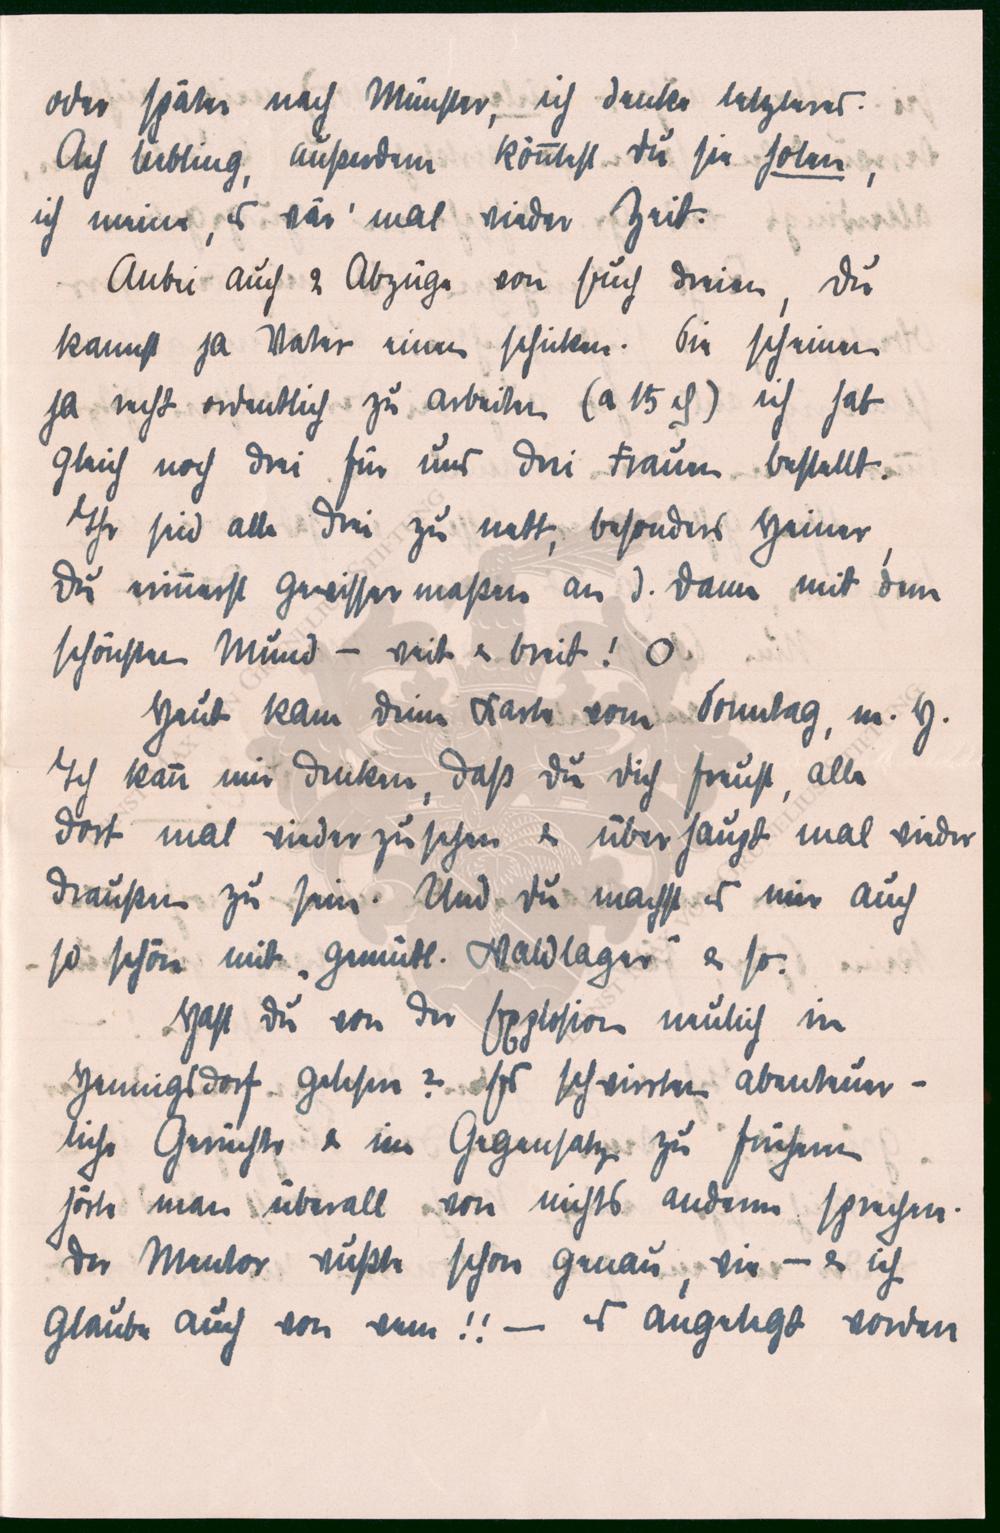 oder später nach Münster, ich denke letzteres.
Ach Liebling, außerdem könntest du sie holen,
ich meine, es wär' mal wieder Zeit.
Anbei auch 2 Abzüge von Euch dreien, Du
kannst ja Vater einen schicken. Sie scheinen
ja recht ordentlich zu arbeiten (a 15 ₰) ich hab
gleich noch drei für uns drei Frauen bestellt.
Ihr seid alle drei zu nett, besonders Heiner,
du erinnerst gewissermaßen an d. Dame mit dem
schönsten Mund – weit & breit! O
Heut kam deine Karte vom Sonntag, m. H.
Ich kann mir denken, daß du dich freust, alle
dort mal wiederzusehen & überhaupt mal wieder
draußen zu sein. Und du machst es mir auch
so schön mit „gemütl. Waldlager" & so.
Hast du von der Explosion neulich in
Hennigsdorf gelesen? Es schwirrten abenteuer-
liche Gerüchte & im Gegensatz zu früheren
hörte man überall von nichts anderem sprechen.
Der Mentor wußte schon genau, wie – & ich
glaube auch von wem!! – es angelegt worden
KUNST MAX VON GRIMM